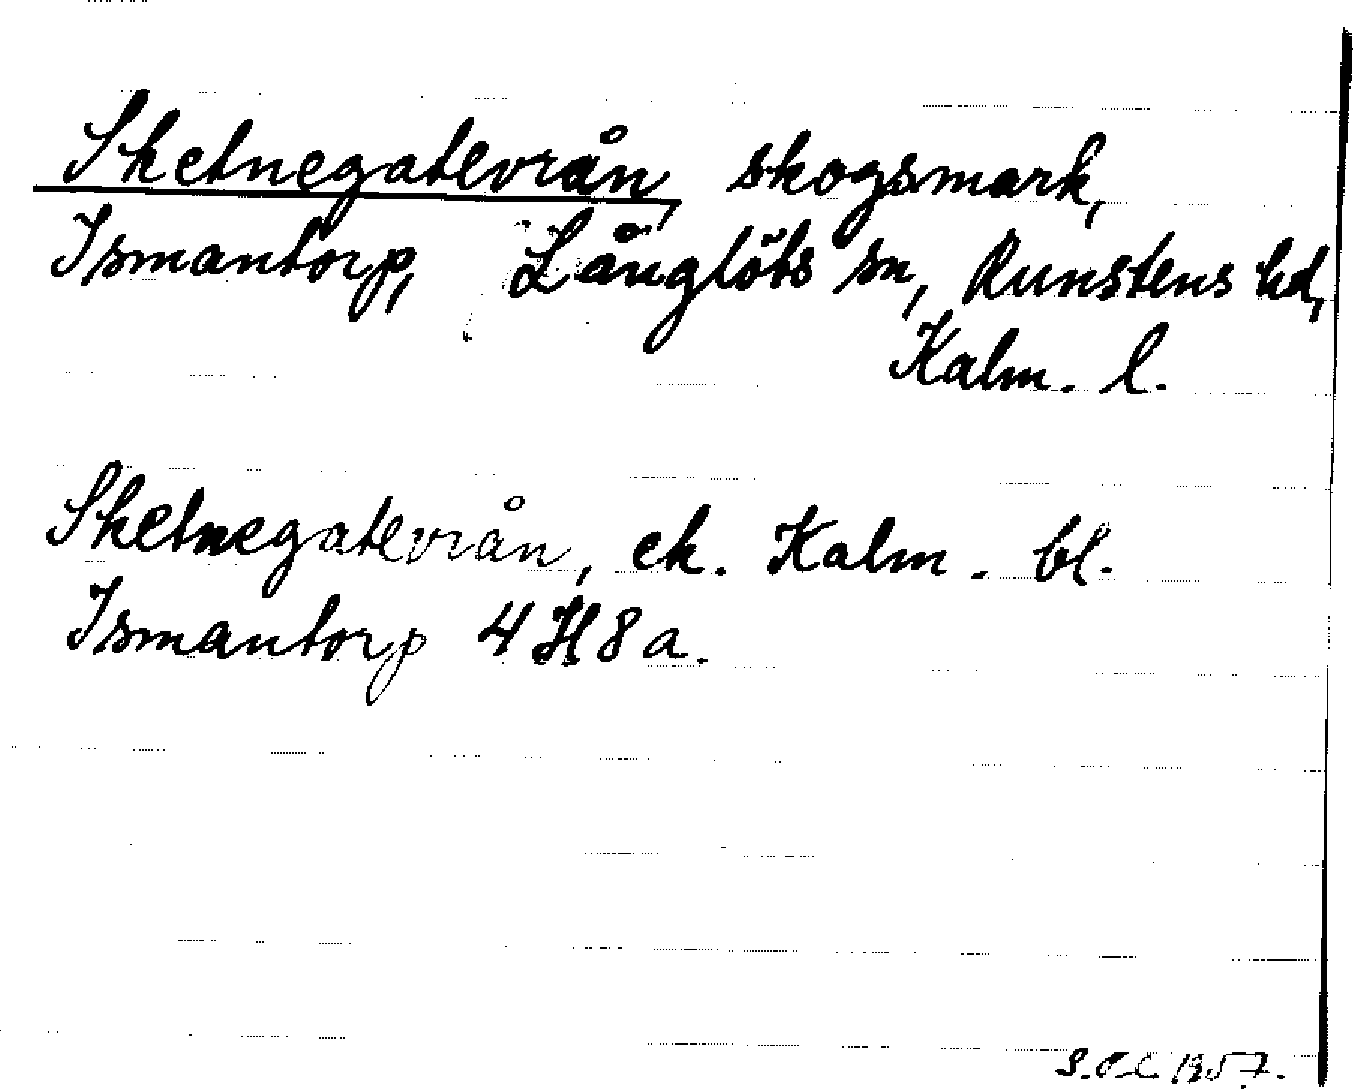 Sketnegatevrån, skogsmark,
Ismantorp, Långlöts sn, Runstens hd,
Kalm. l.
Sketnegatevrån, ek. Kalm. bl.
Ismantorp 4H8a.
1957.